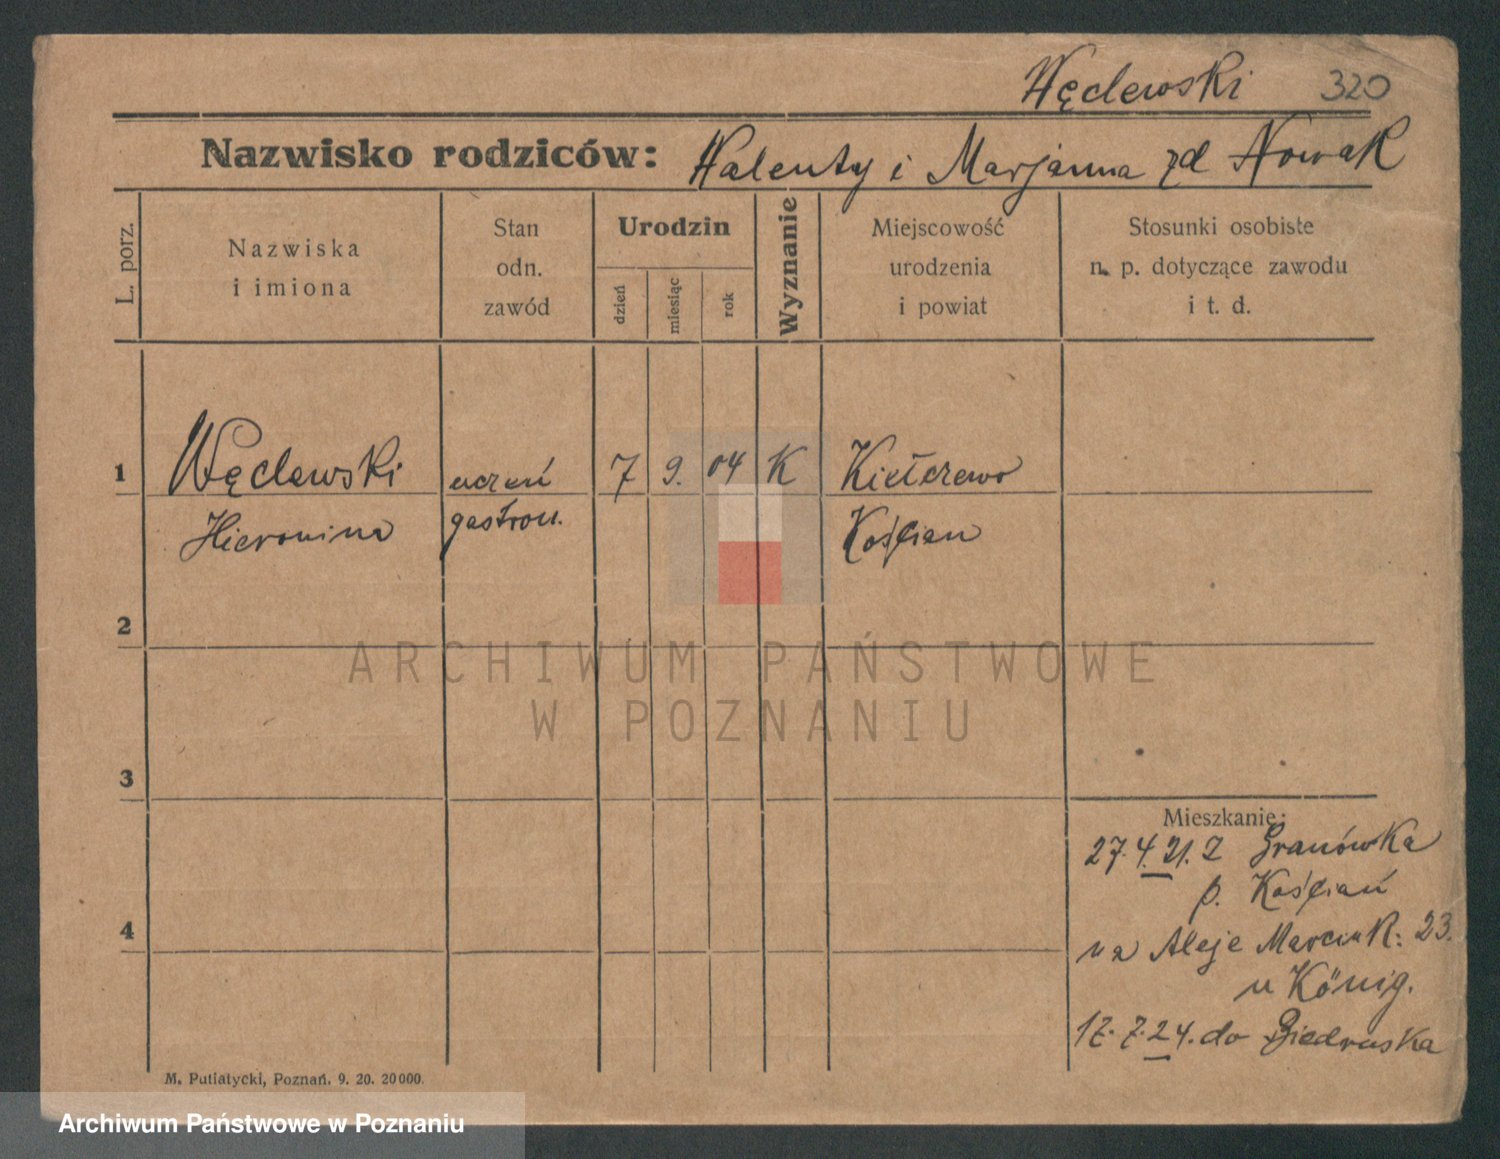 Węclewski 320
Nazwisko rodziców: Walenty i Marjanna zd Nowak
L. porz.
Nazwiska
i imiona
Stan
odn.
zawód
Urodzin
dzień
miesiąc
rok
Wyznanie
Miejscowość
urodzenia
i powiat
Stosunki osobiste
n. p. dotyczące zawodu
i t. d.
1 Węclewski uczeń 7 9. 04 K Kiełczewo
Hieronima gastron. Kościan
2
ARCHIWUM PAŃSTWOWE
W POZNANIU
3
Mieszkanie:
27.4.21. Z Granówka
p. Kościań
4
na Aleje Marcink: 23.
u König.
17.7.24. do Biedruska
M. Putiatycki, Poznań. 9. 20. 20000.
Archiwum Państwowe w Poznaniu